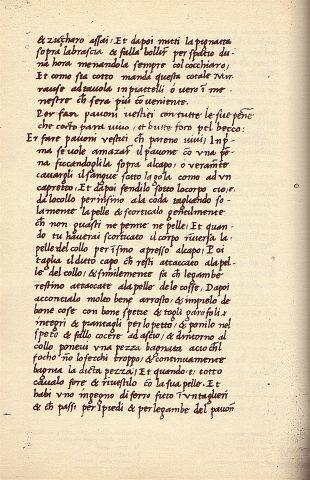 & zucharo assai; Et dapoi metti la pignatta
sopra la brascia & falla bollir per spatio du
na hora menandola sempre col cocchiaro;
Et como sia cotto manda questa cotale
a tavola in piattelli o vero
nestre ch sera piu coveniente.
Per fare pavoni vestiti con tutte le sue penne
che cocto para vivo, et butte foco pel becco:
Er fare pavoni vestiti ch pareno vivi; In p
ma se vole amazar il pavone co una
na ficcandogli la sopra al capo; o veramente
cavargli il sangue sotto la gola como ad un
capretto; Et dapoi fendilo sotto lo corpo cio e
da lo collo per insino a la coda tagliendo so
lamente la pelle & scorticalo gentilmente
ch non guasti ne penne ne pelle; Et quan
do tu haverai scorticato il corpo riversa la
pelle del collo per insino apresso al capo; Poi
taglia il ditto capo ch resti attaccato a la pel
le del collo; & similemente fa ch le gambe
restino attaccate a la pelle de le cosse. Dapoi
acconcialo molto bene arrosto; & impielo de
bone cose con bone spetie & togli garofoli
integri & piantagli per lo petto; & ponilo nel
speto & fallo cocere ad ascio; & dintorno al
collo ponevi una pezza bagnata acio chl
focho no lo secchi troppo; & continuamente
bagna la dicta pezza; Et quando e cotto
cavalo fore & rivestilo co la sua pelle. Et
habi uno ingegno di ferro fitto i un taglieri
& ch passi per i piedi & per le gambe del pavon